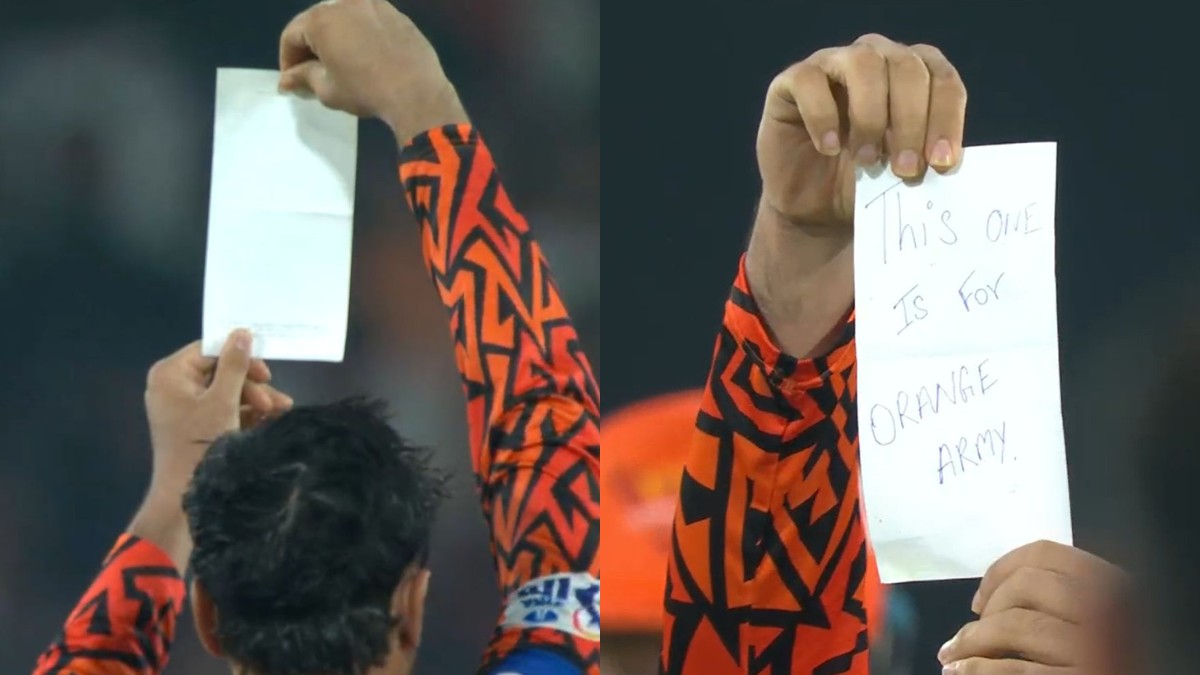 This ONE
Is For
ORANGE
ARMY.